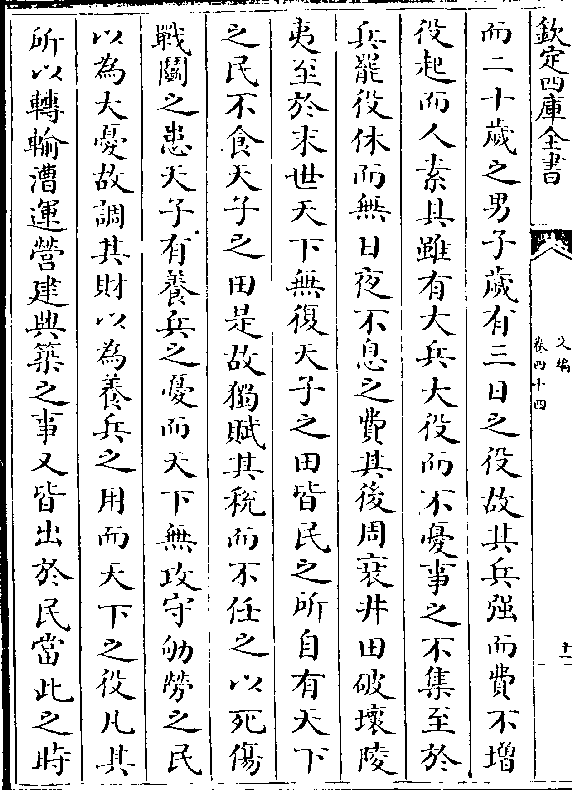 欽定四庫全書
文編
卷四十四
十一
而二十歲之男子歲有三日之役故其兵强而費不增
役起而人素具雖有大兵大役而不憂事之不集至於
兵罷役休而無日夜不息之費其後周衰井田破壞陵
夷至於末世天下無復天子之田皆民之所自有天下
之民不食天子之田是故獨賦其稅而不任之以死傷
戰鬭之患天子有養兵之憂而天下無攻守劬勞之民
以為大憂故調其財以為養兵之用而天下之役凡其
所以轉輸漕運營建興築之事又皆出於民當此之時